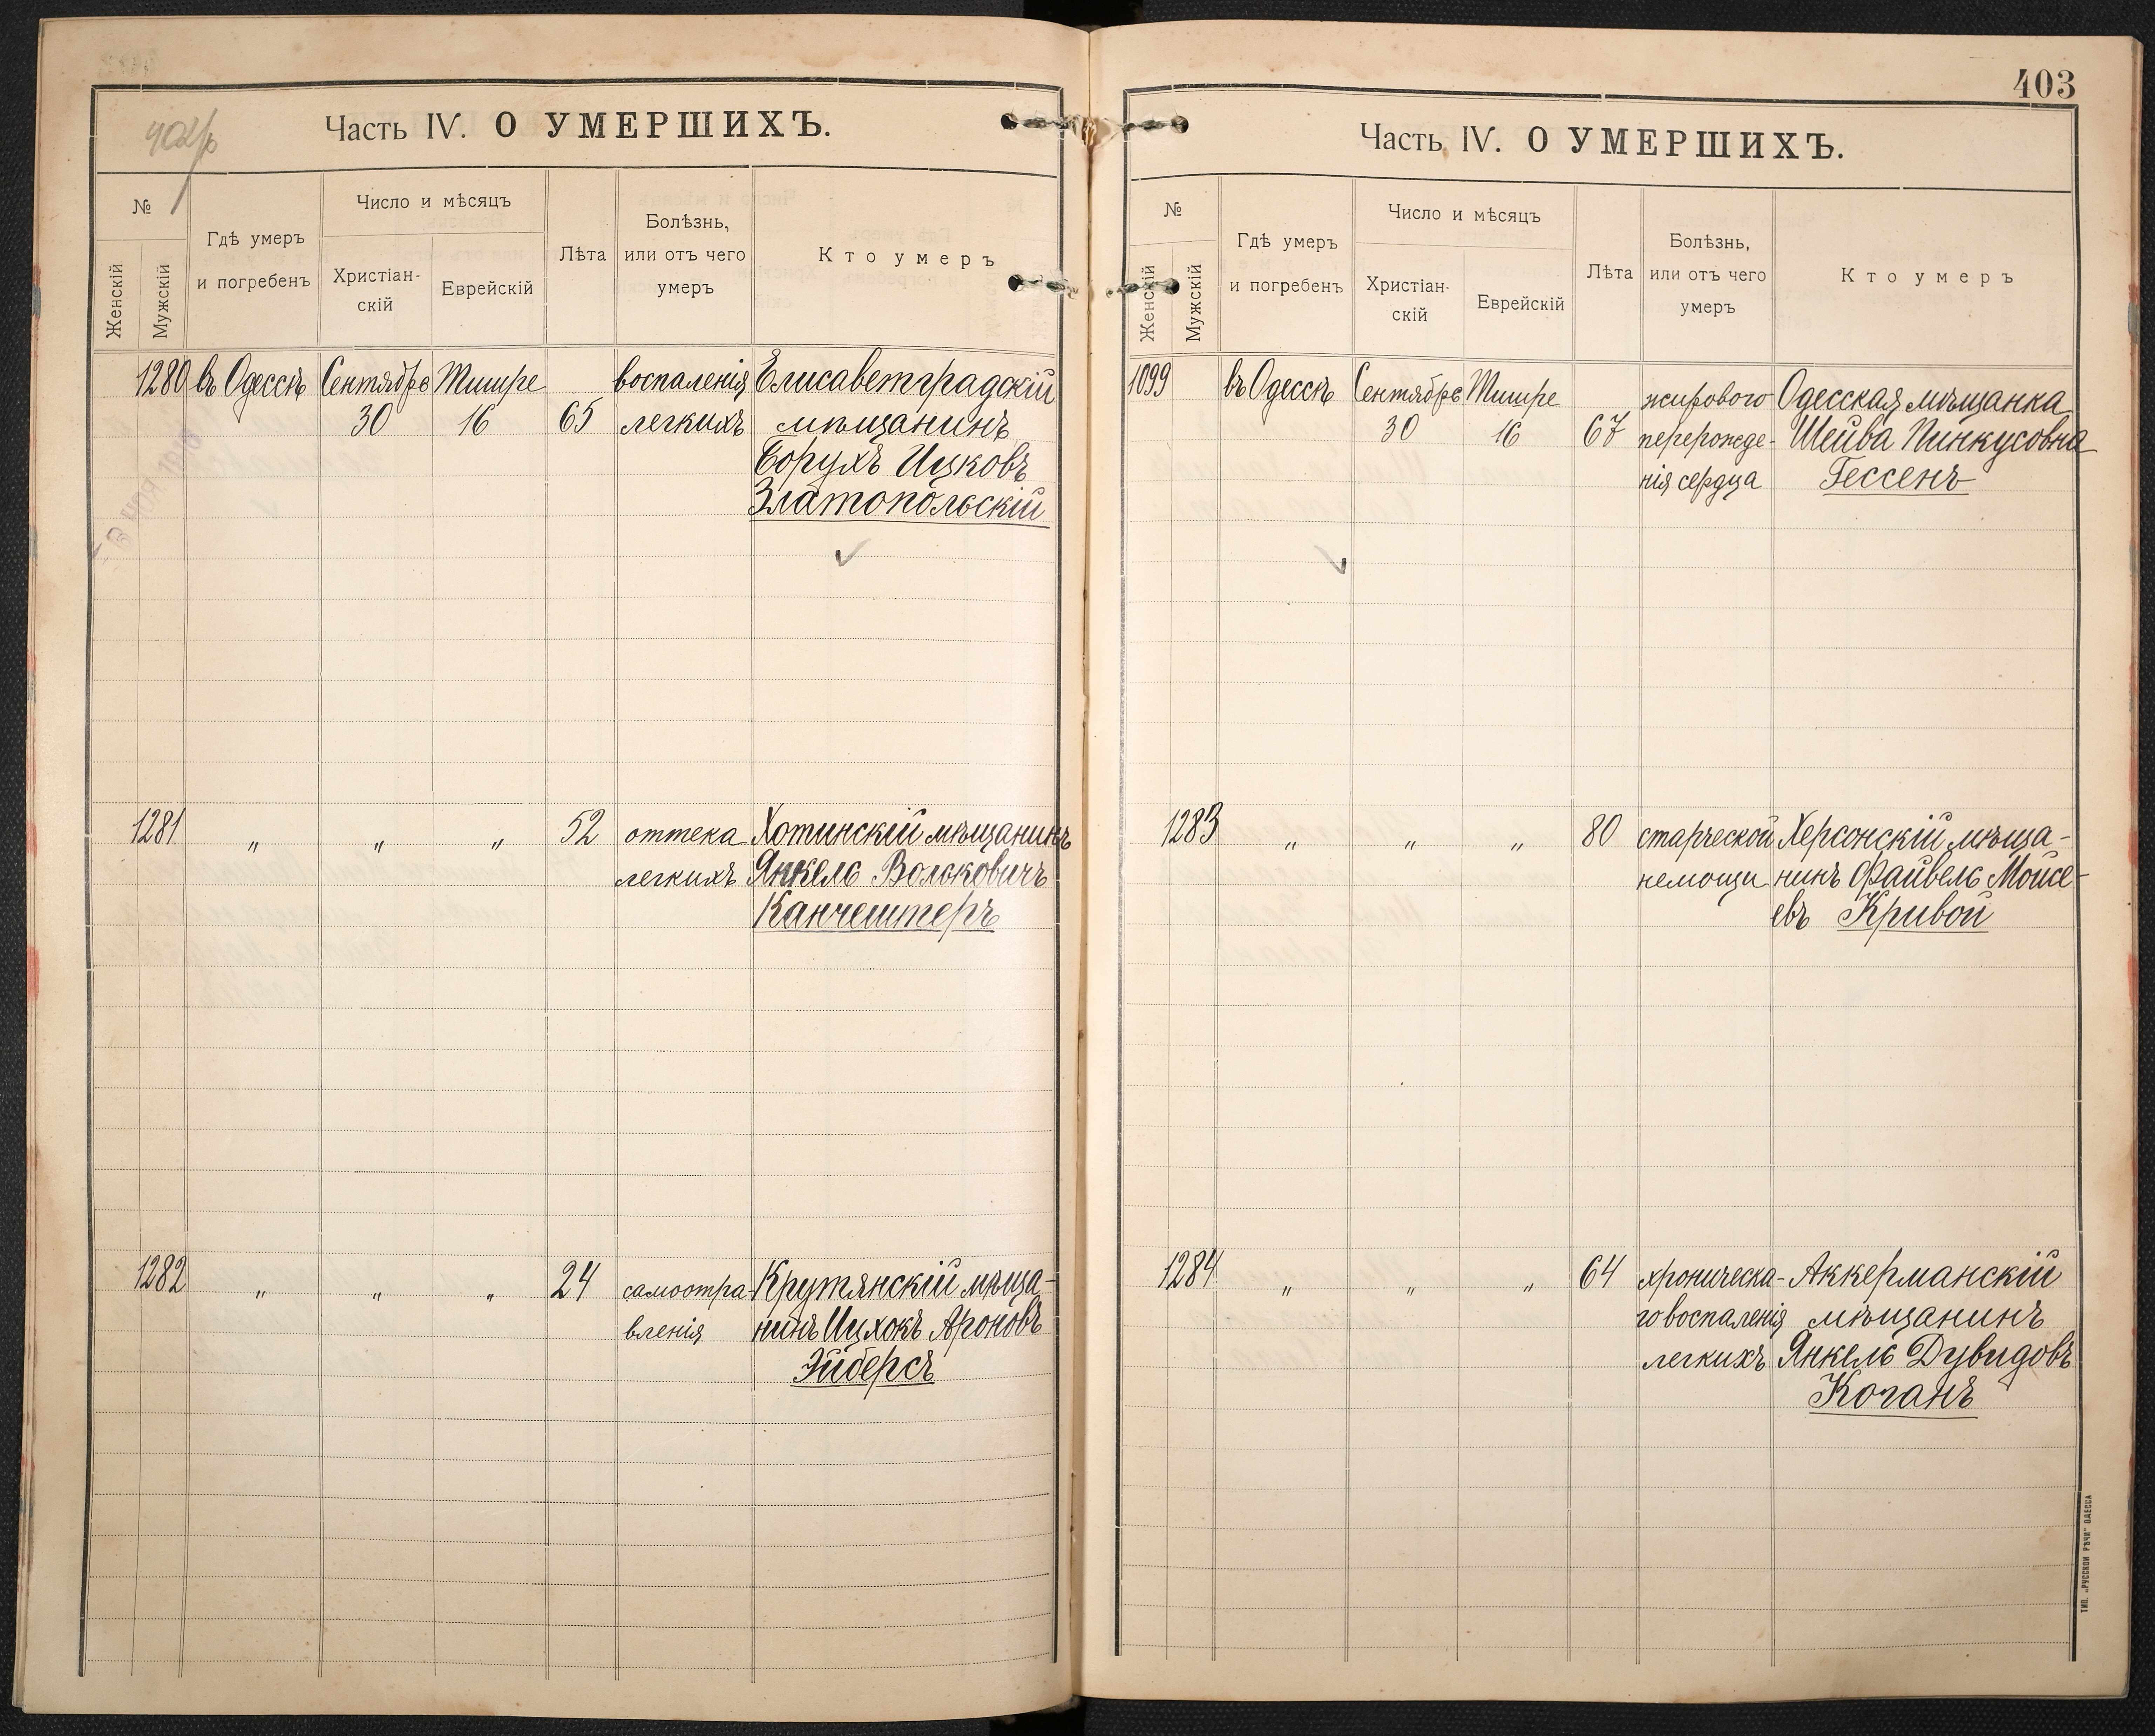 Часть IV. О УМЕРШИХЪ.
№
Женскій
Мужскій
Гдѣ умеръ
и погребенъ
Число и мѣсяцъ
Христіан-
скій
Еврейскій
Лѣта
Болѣзнь,
или отъ чего
умеръ
Кто умеръ
1280 въ Одессѣ Сентябре Тишре воспаленія Елисаветградскій
30 16 65 легкихъ мѣщанинъ
Борухъ Ицковъ
Златопольскій
1281 „ „ „ 52 оттека Хотинскій мѣщанинъ
легкихъ Янкель Вольковичъ
Канчештеръ
1282 „ „ „ 24 самоотра- Крутянскій мѣща-
вленія нинъ Ицхокъ Ароновъ
Эйберсъ
403
Часть IV. О УМЕРШИХЪ.
№
Женскій
Мужскій
Гдѣ умеръ
и погребенъ
Число и мѣсяцъ
Христіан-
скій
Еврейскій
Лѣта
Болѣзнь,
или отъ чего
умеръ
Кто умеръ
1099 въ Одессѣ Сентябре Тишре жирового Одесская мѣщанка
30 16 67 перерожде- Шейва Пинкусовна
нія сердца Гессенъ
1283 „ „ „ 80 старческой Херсонскій мѣща-
немощи нинъ Файвель Мойсе-
евъ Кривой
1284 „ „ „ 64 хроническа- Аккерманскій
го воспаленія мѣщанинъ
легкихъ Янкель Дувидовъ
Коганъ
ТИП. „РУССКОЙ РѢЧИ" ОДЕССА